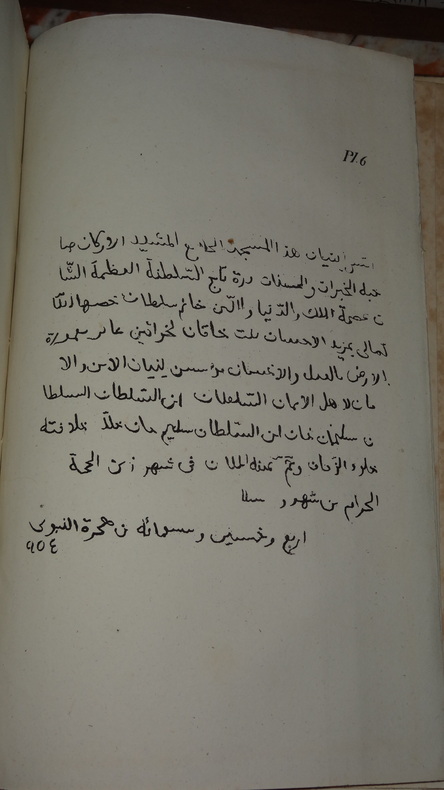 Pl. 6
بنيان هذا المسجد الجامع المشيد اروكان صا
حبة الخيرات والحسنات درة تاج السلطنة العظمة الشا
عصمة الملك والدنيا والدين خانم سلطان خصها الله
تعالى بمزيد الاحسان بنت خاقان الخواقين عامر معمورة
الارض بالعدل والاحسان مؤسس بنيان الامن والا
مان لاهل الايمان السلطان ابن السلطان السلطا
ن سليمان خان ابن السلطان سليم خان خلد خلافته
الزمان وتم في شهر ذى الحجة
الحرام من شهور
اربع وخمسين وتسعمائة من هجرة النبوى
٩٥٤